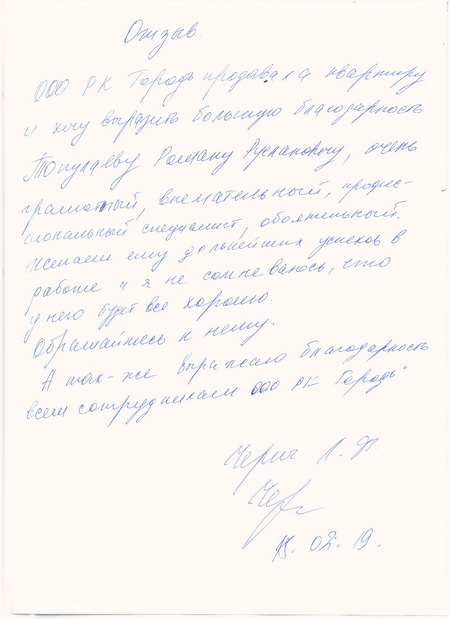 Отзыв.
ООО РК Городъ продавала квартиру
и хочу выразить большую благодарность
Роману Руслановичу, очень
грамотный, внемательный, профес-
сиональный специалист, обоятельный.
Желаем ему дальнейших успехов в
работе и я не сомневаюсь, что
у него будет все хорошо.
Обращайтесь к нему.
А так-же выражаю благодарность
всем сотрудникам ООО РК Городъ"
Л.
02.19.